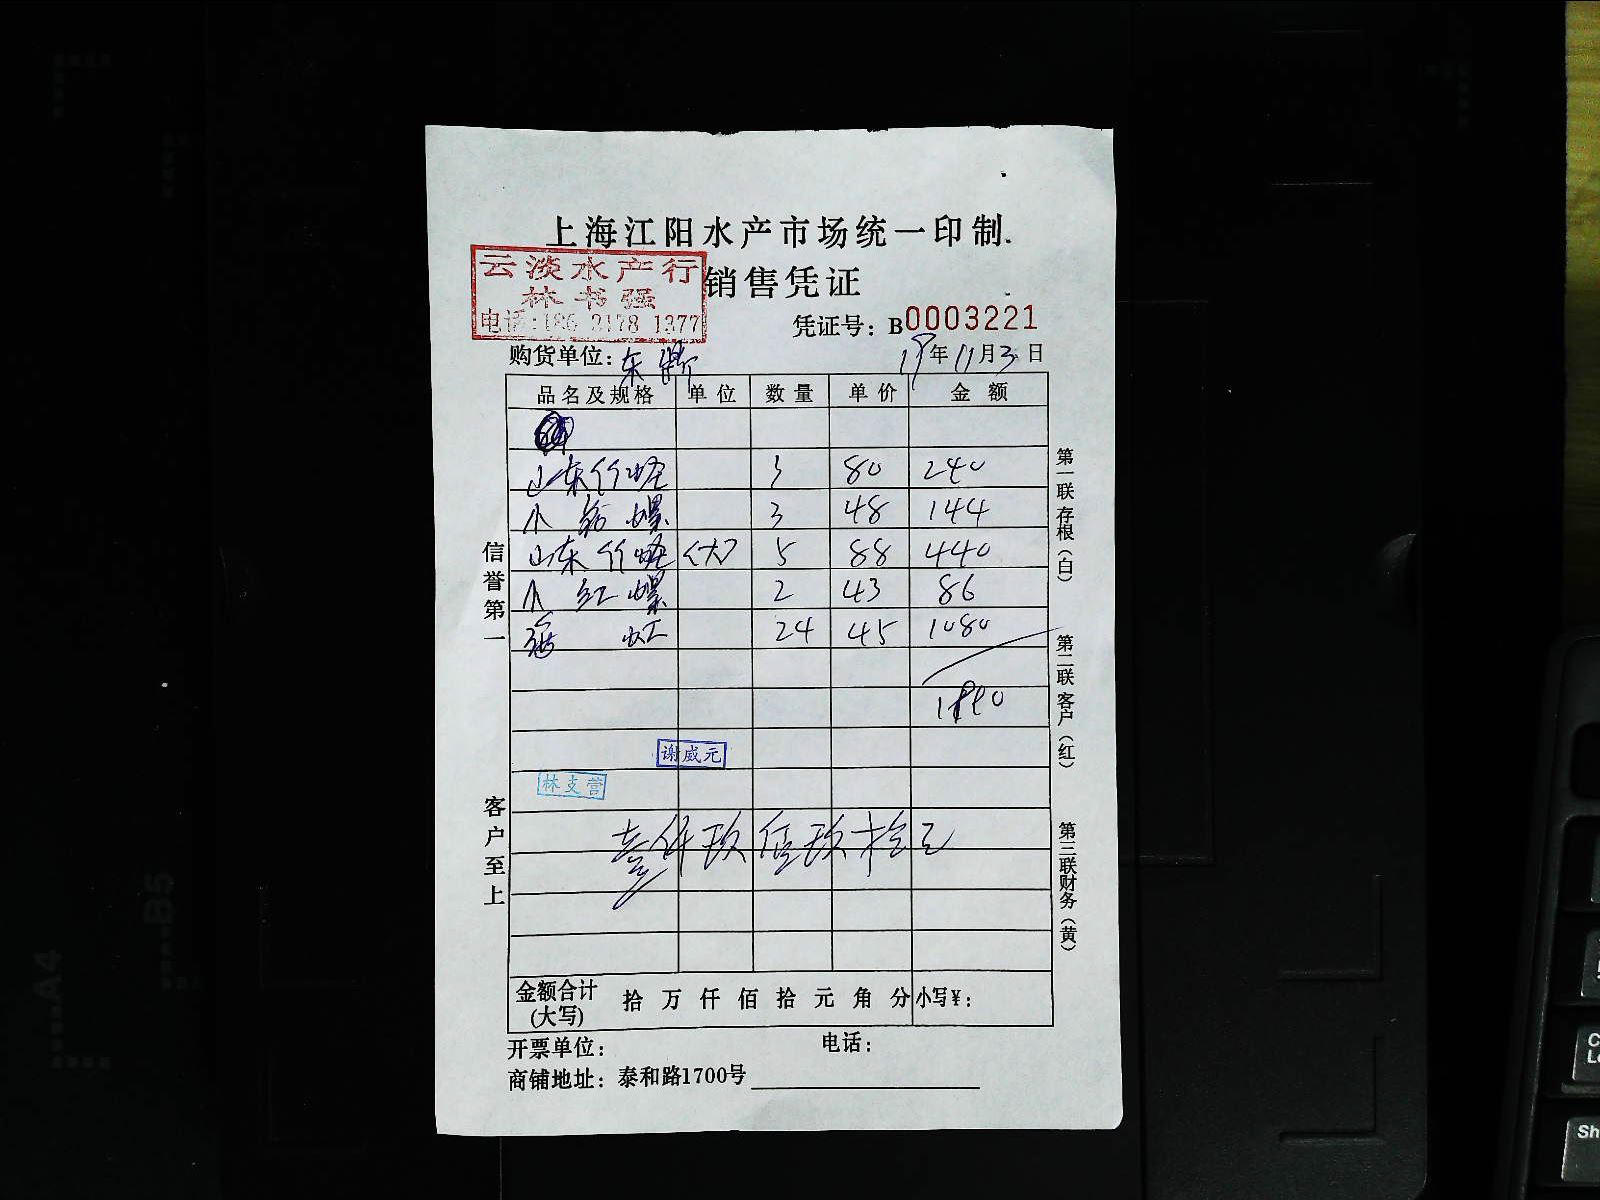 上海江阳水产市场统一印制
云淡水产行
林书强
电话:186 2178 1377
销售凭证
凭证号：B0003221
购货单位：东
19年11月3日
品名及规格 单位 数量 单价 金额
山东竹蛏 3 80 240
小 螺 3 48 144
山东竹蛏 (大) 5 88 440
小红螺 2 43 86
24 45 1080
1990
谢威元
林支营
壹仟玖佰玖拾元
金额合计
(大写)
拾 万 仟 佰 拾 元 角 分 小写￥：
开票单位：
电话：
商铺地址：泰和路1700号
信誉第一
客户至上
第一联存根（白）
第二联客户（红）
第三联财务（黄）
A4
B5
Sh